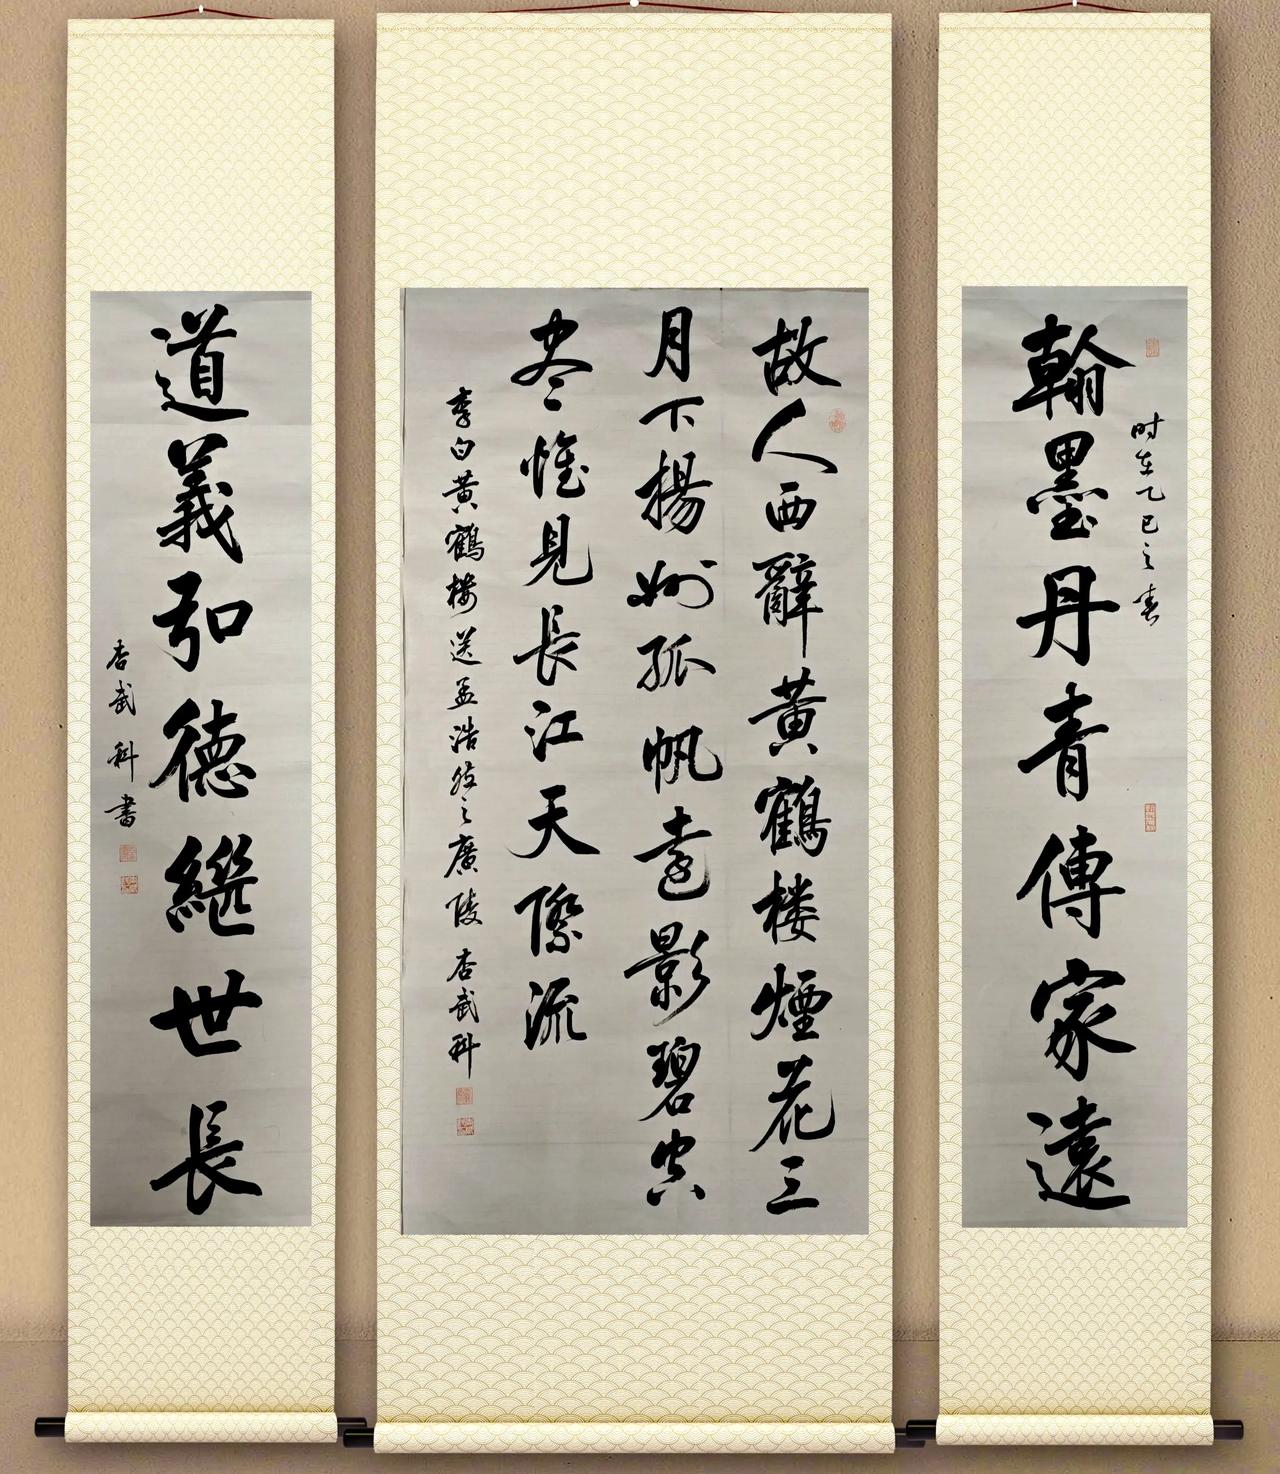 翰墨丹青傳家遠
时在乙巳之春
故人西辭黄鶴楼煙花三
月下揚州孤帆遠影碧空
尽惟見長江天際流
李白黄鶴楼送孟浩然之廣陵 杏武科
道義弘德繼世長
杏武科書